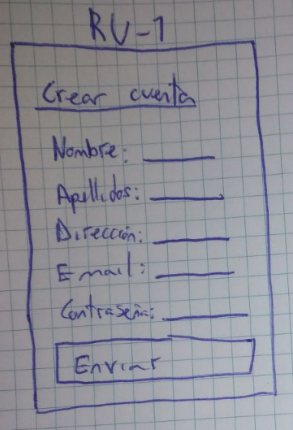 RV-1
Crear cuenta
Nombre:
Apellidos:
Dirección:
Email:
Contraseña:
Enviar